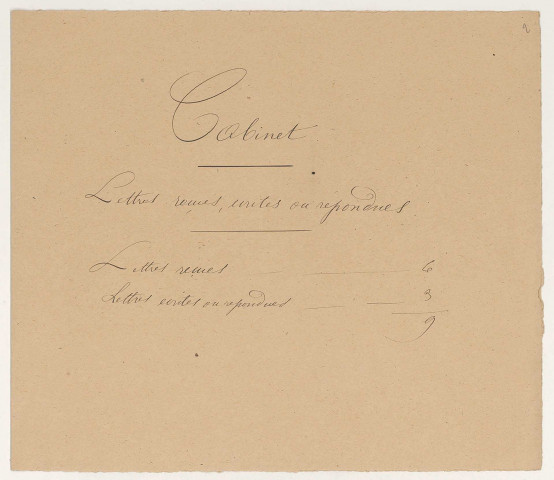 2
Cabinet
Lettres reçues, écrites ou répondues
Lettres reçues 6
Lettres écrites ou répondues 3
9